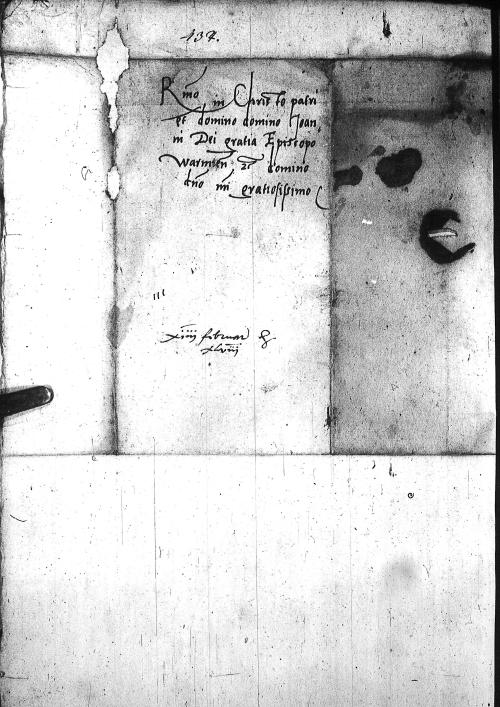 137.
Rmo in Christo patri
et domino domino Joan
ni Dei gratia Episcopo
Warmien zc domino
dno mi gratiosissimo
xiiij februar
xlviij